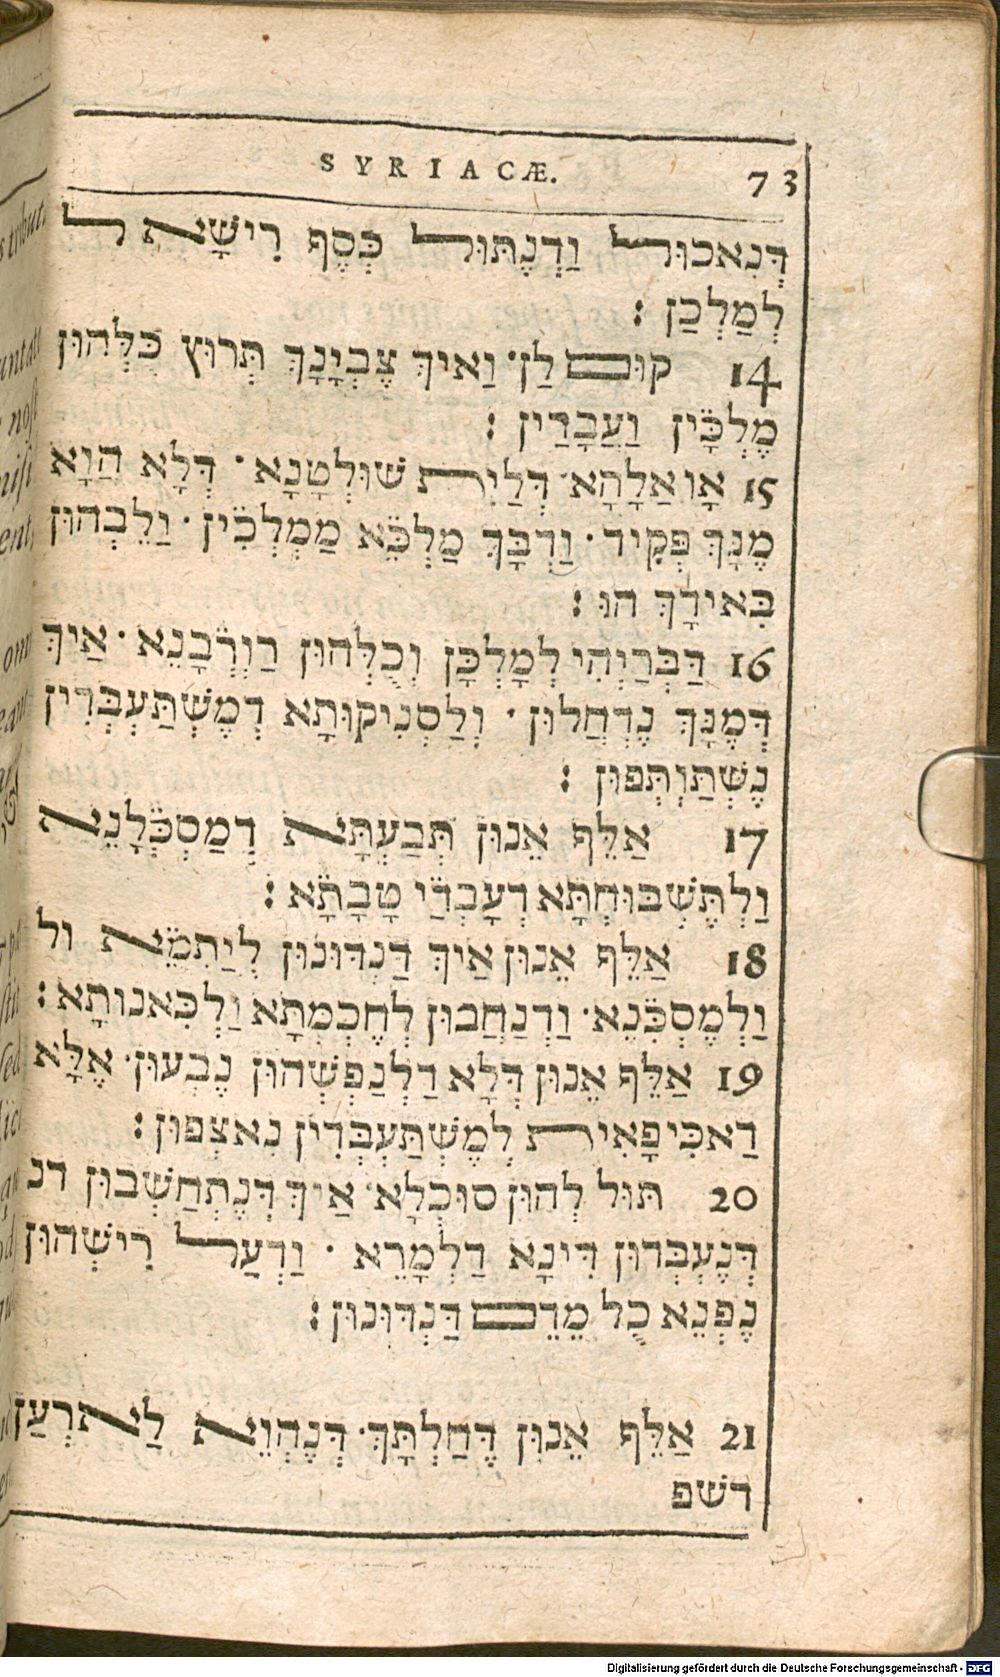 SYRIACÆ. 73
דְּנִאכוּל וַדְנֶתּוּל כְּסֶף רִישָׁא ל
לְמַלְכַן :
14 קוּם לַן· וַאיךְ צֶבְיָנָךְ תְּרוּץ כִּלְּהוּן
מַלְכִּין וַעֲבָדַין :
15 אָו אַלָהָא· דְּלַיִת שׁוּלְטָנָא · דְּלָא הֲוָא
מֶנָךְ פְּקִיד · וַדְבָּךְ מַלְכֵּא מַמְלְכִין · וַלֵבְהוּן
בִּאידָךְ הוּ :
16 דַּבְּרַיְהִי לְמָלְכָּן וְכֻלְּהוּן רַוְרְבָנֵא · אַיךְ
דְּמֶנָּךְ נֶדְחֲלוּן · וְלַסְנִיקוּתָא דְמֶשְׁתַּעְבְּדִין
נֶשְׁתַּוְתְּפוּן :
17 אַלֵּף אֵנוּן תְּבַעְתָּא דְמַסְכְּלָנֵא
וַלְתֶּשְׁבּוּחְתָּא דְעָבְדַי טָבָתָא :
18 אַלֵּף אֵנוּן אַיךְ דַּנְדוּנוּן לְיַתְמֵא ול
וַלְמֶסְכִּנֵא· וַדְנַחֲבוּן לְחֶכְמְתָּא וַלְכִּאנוּתָא :
19 אַלֵּף אֵנוּן דְּלָא דַלְנַפְשְׁהוּן נֶבְעוּן· אֶלָּא
דַאכִיפָאִית לְמֶשְׁתַּעְבְּדִין נִאצְפוּן :
20 תּוּל לְהוּן סוּכְלָא· אַיךְ דְּנֶתְחַשְׁבוּן דנ
דְּנֶעְבְּדוּן דִּינָא דַלְמָרֵא · וַדְעַל רִישְׁהוּן
נֶפְנֵא כֻל מֵדֵם דַּנְדוּנוּן :
21 אַלֵּף אֵנוּן דֶּחַלְתָּךְ· דְּנֶהְוֵא לַארְעַן
דשׁפ
Digitalisierung gefördert durch die Deutsche Forschungsgemeinschaft - DFG